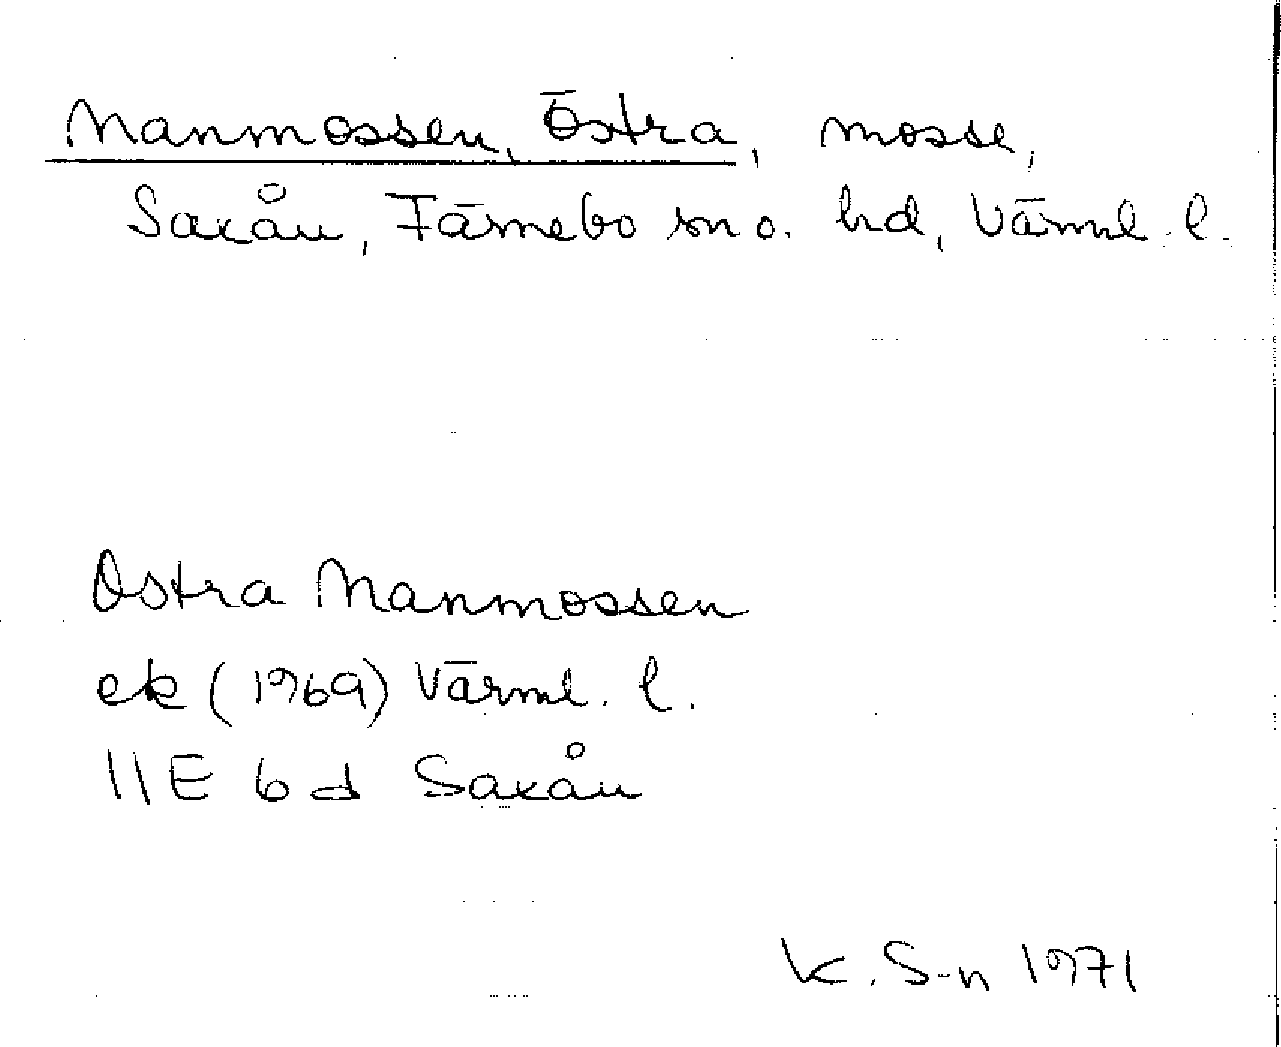 Manmossen, Östra, mosse,
Saxån, Färnebo sn o. hd, Värml. l.
Östra Manmossen
ek (1969) Värml. l.
11E 6d Saxån
K. S-n 1971